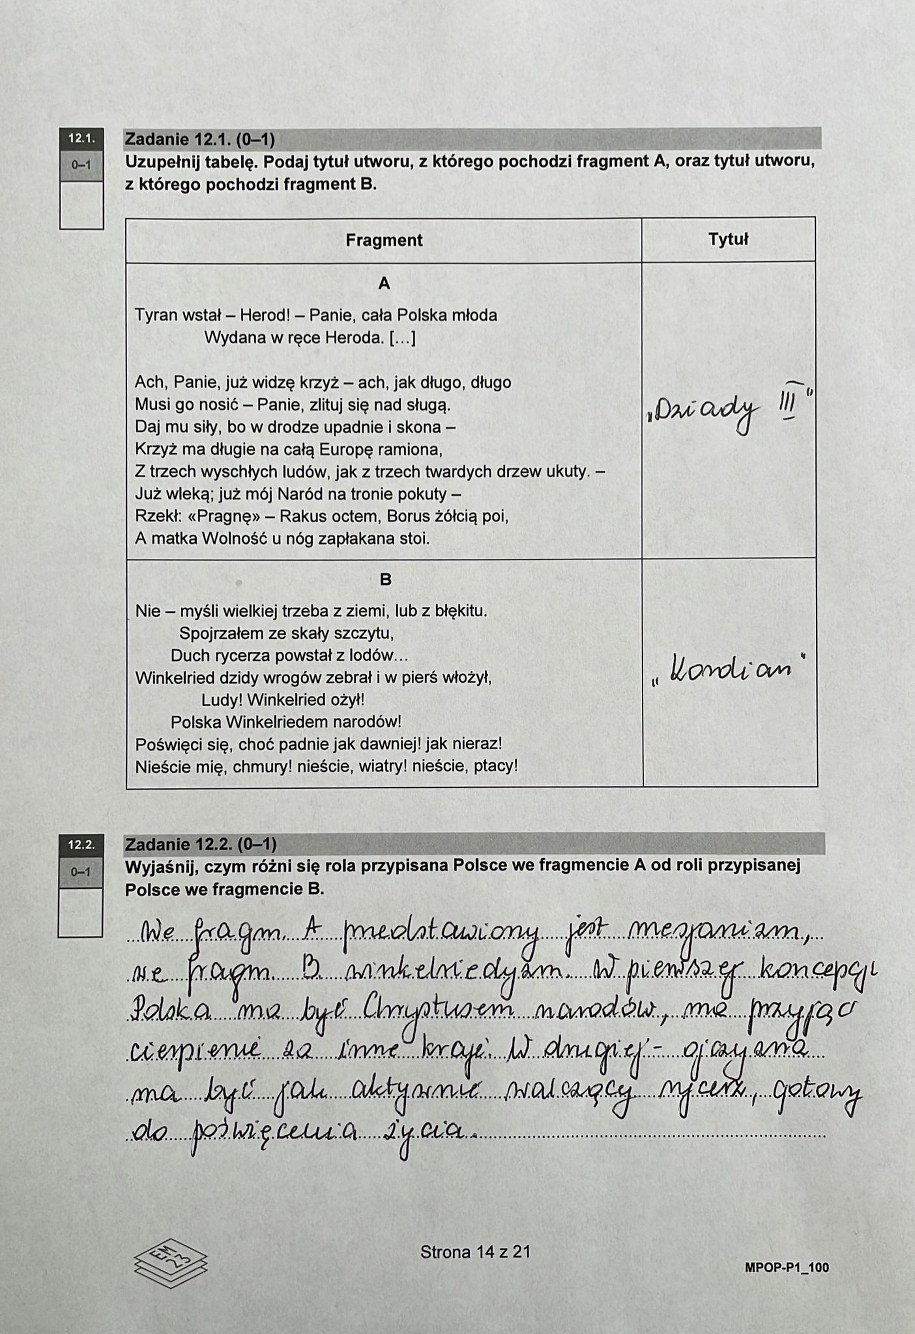 12.1.
0–1
Zadanie 12.1. (0–1)
Uzupełnij tabelę. Podaj tytuł utworu, z którego pochodzi fragment A, oraz tytuł utworu,
z którego pochodzi fragment B.
Fragment
Tytuł
A
Tyran wstał – Herod! – Panie, cała Polska młoda
Wydana w ręce Heroda. […]
Ach, Panie, już widzę krzyż – ach, jak długo, długo
Musi go nosić – Panie, zlituj się nad sługą.
Daj mu siły, bo w drodze upadnie i skona –
Krzyż ma długie na całą Europę ramiona,
Z trzech wyschłych ludów, jak z trzech twardych drzew ukuty. –
Już wleką; już mój Naród na tronie pokuty –
Rzekł: «Pragnę» – Rakus octem, Borus żółcią poi,
A matka Wolność u nóg zapłakana stoi.
„Dziady III"
B
Nie – myśli wielkiej trzeba z ziemi, lub z błękitu.
Spojrzałem ze skały szczytu,
Duch rycerza powstał z lodów…
Winkelried dzidy wrogów zebrał i w pierś włożył,
Ludy! Winkelried ożył!
Polska Winkelriedem narodów!
Poświęci się, choć padnie jak dawniej! jak nieraz!
Nieście mię, chmury! nieście, wiatry! nieście, ptacy!
„Kordian"
12.2.
0–1
Zadanie 12.2. (0–1)
Wyjaśnij, czym różni się rola przypisana Polsce we fragmencie A od roli przypisanej
Polsce we fragmencie B.
We fragm. A przedstawiony jest mesjanizm,
we fragm. B winkelriedyzm. W pierwszej koncepcji
Polska ma być Chrystusem narodów, ma przyjąć
cierpienie za inne kraje. W drugiej – ojczyzna
ma być jak aktywnie walczący rycerz, gotowy
do poświęcenia życia.
EM
23
Strona 14 z 21
MPOP-P1_100